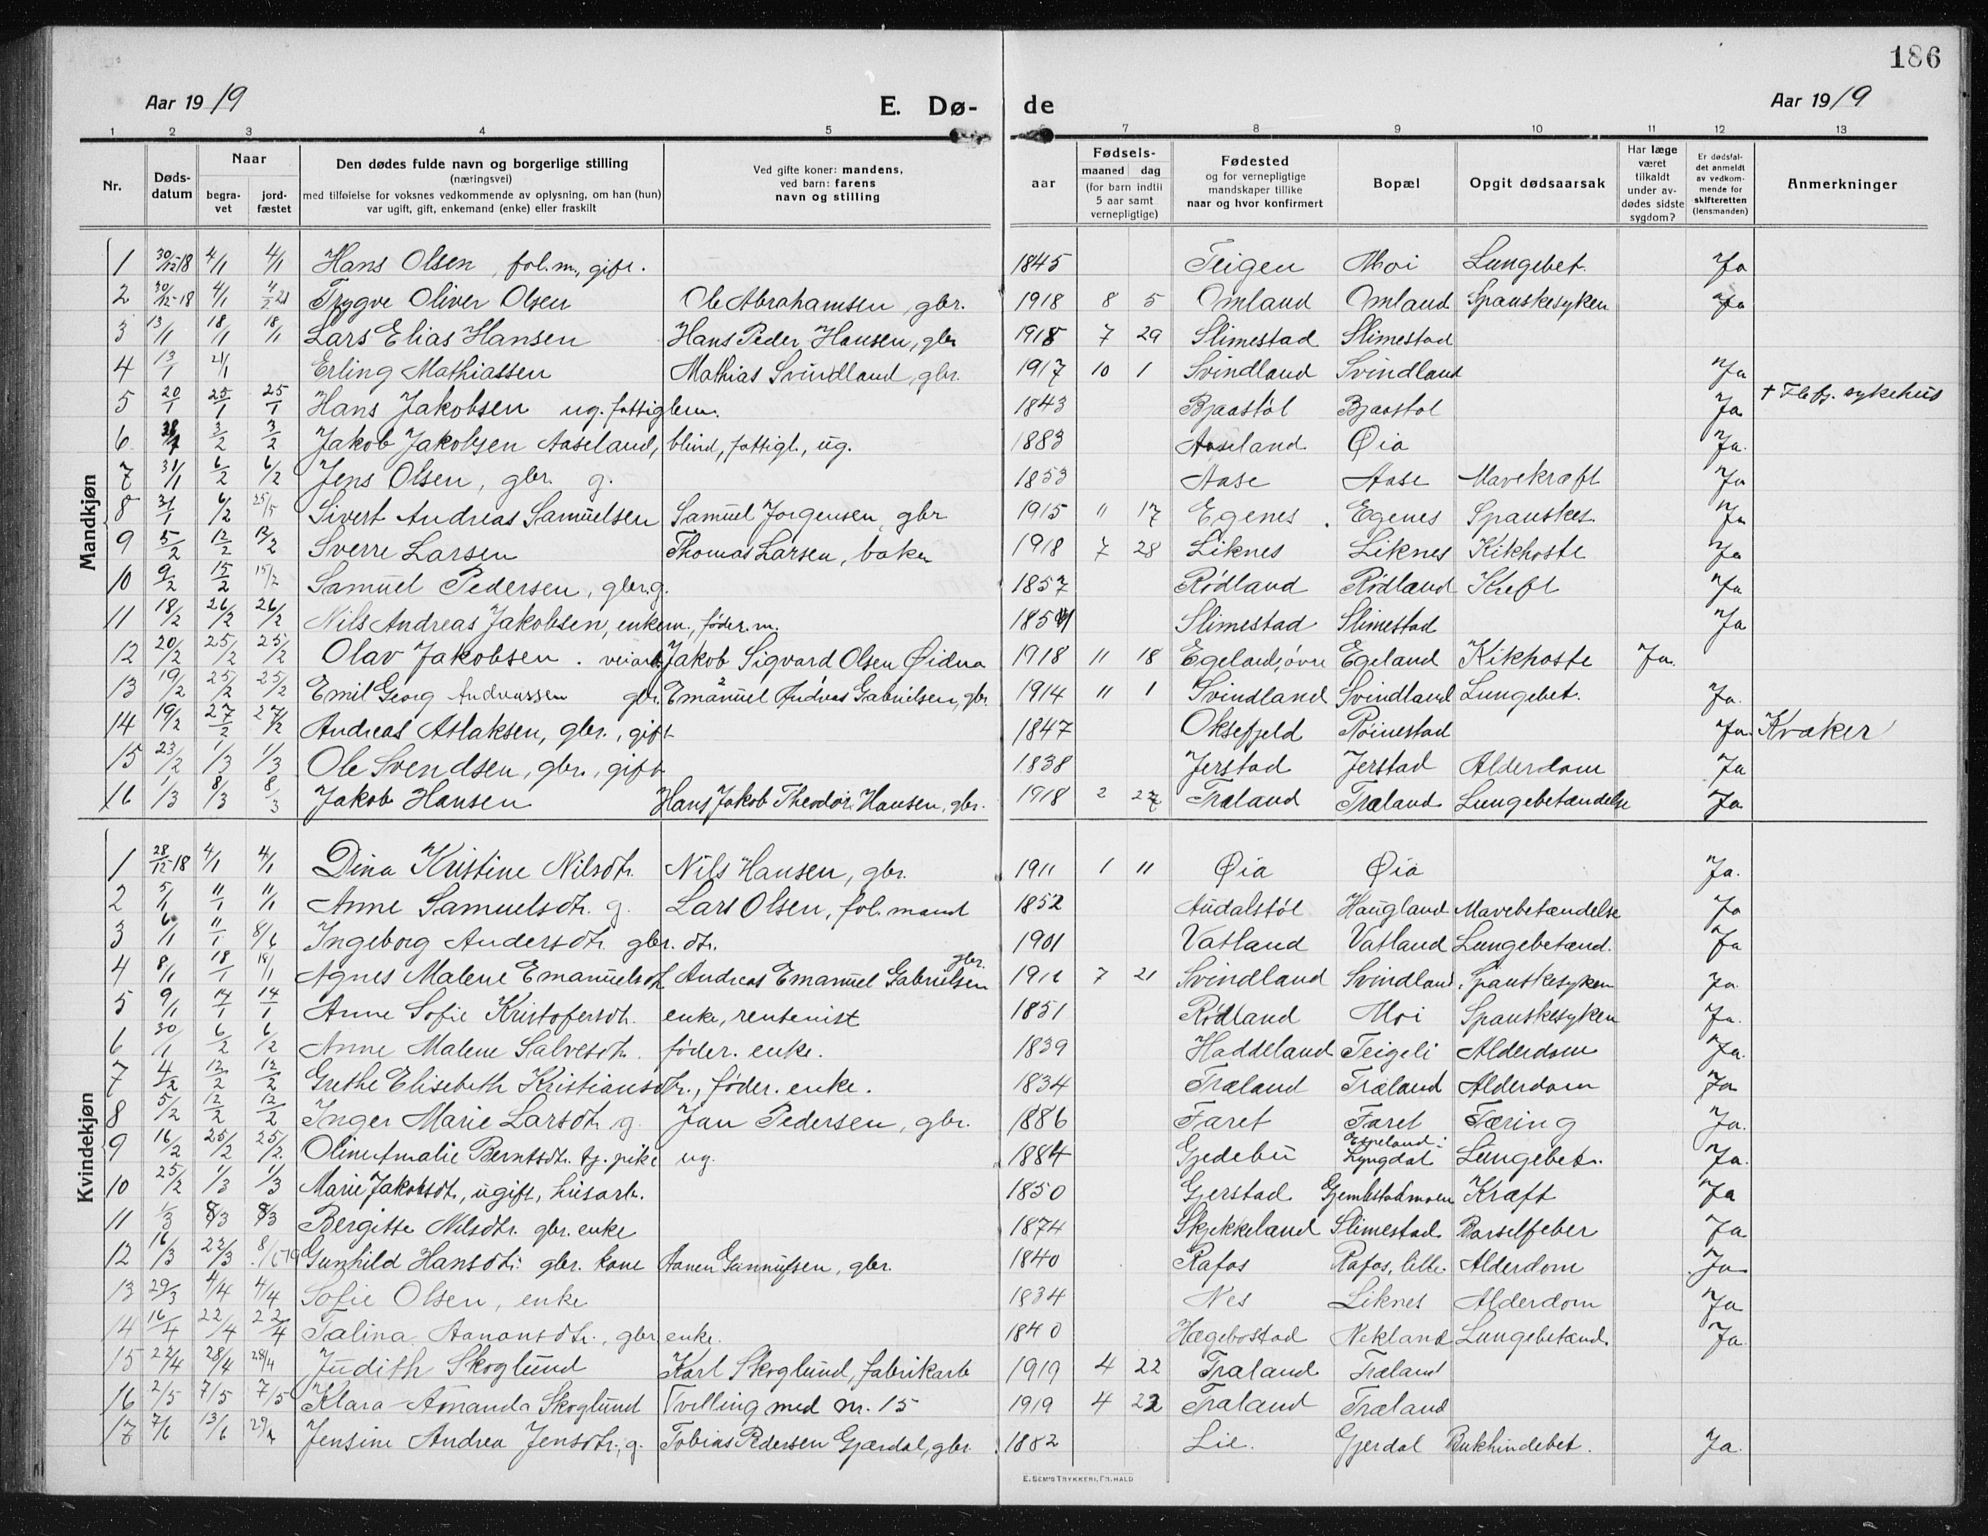 186
Aar 1919 E. Dø- de Aar 1919
1 2 3 4 5 6 7 8 9 10 11 12 13
Nr. Døds-datum Naar begra-vet jord-fæstet Den dødes fulde navn og borgerlige stilling (næringsvei) med tilføielse for voksnes vedkommende av oplysning, om han (hun) var ugift, gift, enkemand (enke) eller fraskilt Ved gifte koner: mandens, ved barn: farens navn og stilling aar Fødsels- maaned dag (for barn indtil 5 aar samt vernepligtige) Fødested og for vernepligtige mandskaper tillike naar og hvor konfirmert Bopæl Opgit dødsaarsak Har læge været tilkaldt under av-dødes sidste sygdom? Er dødsfal-det anmeldt av vedkom-mende for skifteretten (lensmanden) Anmerkninger
Mandkjøn
1 30/12-18 4/1 4/1 Hans Olsen, fol.m., gift. 1845 Teigen Moi Lungebet. Ja
2 30/12-18 4/1 4/2 21 Trygve Oliver Olsen Ole Abrahamsen, gbr. 1918 8 5 Omland Omland Spanskesyken Ja
3 13/1 18/1 18/1 Lars Elias Hansen Hans Peder Hansen, gbr 1918 7 29 Slimestad Slimestad
4 13/1 21/1 Erling Mathiassen Mathias Svindland, gbr. 1917 10 1 Svindland Svindland Ja
5 20/1 25/1 25/1 Hans Jakobsen ug. fattiglem. 1843 Bjaastøl Bjaastøl Ja + Flefj. sykehus
6 3/2 3/2 Jakob Jakobsen Aaseland, blind, fattigl., ug. 1883 Aaseland Øia Ja.
7 31/1 6/2 6/2 Jens Olsen, gbr. g. 1853 Aase Aase Mavekræft Ja
8 31/1 6/2 25/5 Sivert Andreas Samuelsen Samuel Jørgensen, gbr 1915 11 17 Egenes Egenes Spanskes. Ja
9 5/2 12/2 12/2 Sverre Larsen Thomas Larsen, baker 1918 7 28 Liknes Liknes Kikhoste Ja
10 9/2 15/2 15/2 Samuel Pedersen, gbr. g. 1857 Rødland Rødland Kreft Ja
11 18/2 26/2 26/2 Nils Andreas Jakobsen, enkem., føder.m. Slimestad Slimestad Ja
12 20/2 25/2 25/2 Olav Jakobsen. veiarb. Jakob Sigvard Olsen Øidna 1918 11 18 Egelandsøvre Egeland Kikhoste Ja.
13 19/2 25/2 25/2 Emil Georg Andreassen gbr. Emanuel Andreas Gabrielsen, gbr 1914 11 1 Svindland Svindland Lungebet. Ja.
14 19/2 27/2 27/2 Andreas Aslaksen, gbr., gift 1847 Oksefjeld Røinestad Ja. Kvæker
15 23/2 1/3 1/3 Ole Svendsen, gbr., gift 1838 Jerstad Jerstad Alderdom Ja
16 1/3 8/3 8/3 Jakob Hansen Hans Jakob Theodor Hansen, gbr. 1918 2 27 Træland Træland Lungebetændelse Ja
Kvindekjøn
1 28/12-18 4/1 4/1 Dina Kristine Nilsdtr. Nils Hansen, gbr. 1911 1 11 Øia Øia Ja.
2 5/1 11/1 11/1 Anne Samuelsdtr. g. Lars Olsen, fol.mand 1852 Audalstøl Haugland Mavebetændelse Ja
3 6/1 11/1 8/6 Ingeborg Andersdtr. gbr. dtr. 1901 Vatland Vatland Lungebetænd. Ja
4 8/1 18/1 18/1 Agnes Malene Emanuelsdtr. Andreas Emanuel Gabrielsen gbr. 7 21 Svindland Svindland. Spanskesyken Ja
5 9/1 14/1 14/1 Anne Sofie Kristofersdtr. enke, rentenist 1851 Rødland Moi Spanskesyken Ja.
6 30/1 6/2 6/2 Anne Malene Salvesdtr. føder. enke. 1839 Haddeland Teigeli Alderdom Ja.
7 4/2 12/2 12/2 Grethe Elisebeth Kristiansdtr., føder. enke. 1834 Træland Træland Alderdom Ja
8 5/2 12/2 12/2 Inger Marie Larsdtr. g. Jan Pedersen, gbr. 1886 Faret Faret Tæring Ja.
9 16/2 25/2 25/2 Olinefmalie Berntsdtr. tj. pike ug. 1884 Gjedebu Espeland: Lyngdal Lungebet. Ja.
10 25/2 1/3 1/3 Marie Jakobsdt., ugift, husarb. 1850 Gjerstad Kræft Ja
11 1/3 8/3 8/3 Bergitte Nilsdtr. gbr. enke 1874 Skjekkeland Slimestad Barselfeber Ja
12 16/3 22/3 Gunhild Hansdtr. gbr. kone Aanen Gunnufsen, gbr. 1840 Rafos Rafos, lille. Alderdom Ja
13 29/3 4/4 4/4 Sofie Olsen, enke 1834 Nes Liknes Alderdom Ja
14 16/4 22/4 22/4 Talina Aanonsdtr., gbr enke. 1840 Hægebostad Nekland Lungebetænd. Ja.
15 22/4 28/4 28/4 Judith Skoglund Karl Skoglund, fabrikarb 1919 4 22 Træland Træland
16 2/5 7/5 7/5 Klara Amanda Skoglund Tvilling med nr. 15 1919 4 22 Træland Træland
17 7/6 13/6 Jensine Andrea Jensdtr., g. Tobias Pedersen Gjærdal, gbr. 1882 Lie. Gjerdal Bukhindebet. Ja.
E. SEM'S TRYKKERI, FR.HALD